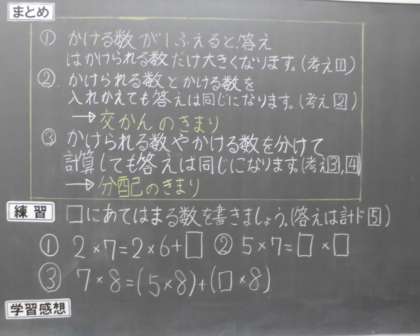 まとめ
① かける数が1ふえると、答え
はかけられる数だけ大きくなります。(考え1)
② かけられる数とかける数を
入れかえても答えは同じになります。(考え2)
→交かんのきまり
③ かけられる数やかける数を分けて
計算しても答えは同じになります。(考え3,4)
→分配のきまり
練習 □にあてはまる数を書きましょう。(答えは計ド5)
① 2×7=2×6+□ ② 5×7=□×□
③ 7×8=(5×8)+(□×8)
学習感想